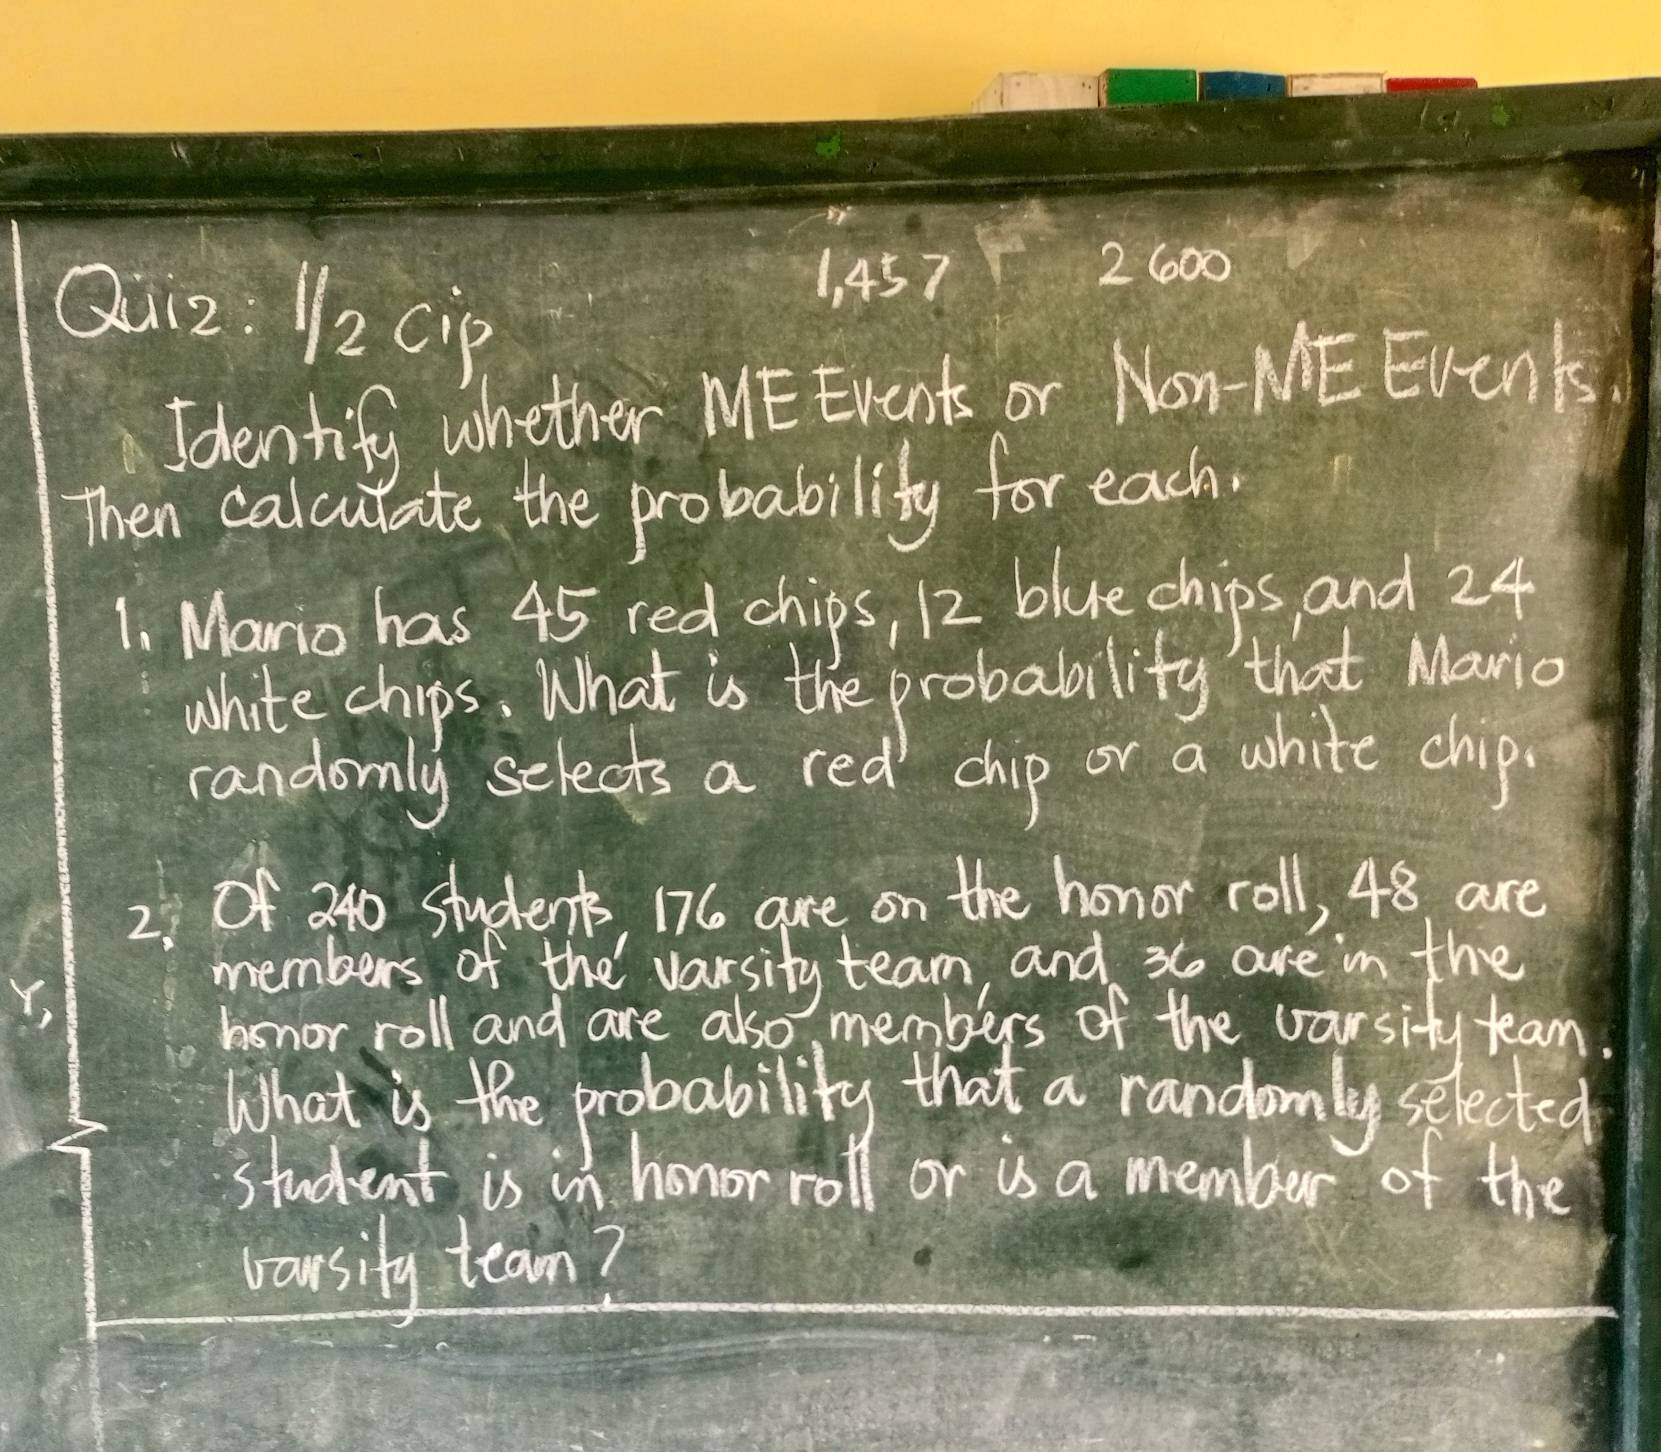 1,457 2600
Quiz: 1/2 Cip
Identify whether ME Events or Non-ME Events.
Then calculate the probability for each.
1. Mario has 45 red chips, 12 blue chips, and 24
white chips. What is the probability that Mario
randomly selects a red chip or a white chip.
2. Of 240 students, 176 are on the honor roll, 48 are
members of the varsity team, and 36 are in the
honor roll and are also members of the varsity team.
What is the probability that a randomly selected
student is in honor roll or is a member of the
varsity team?
Y,